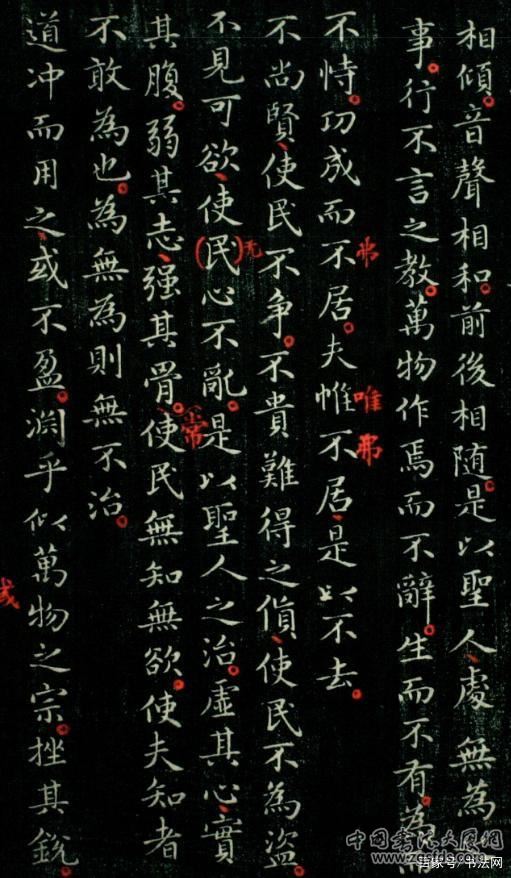 相傾。音聲相和。前後相随。是以聖人、處無為
事。行不言之教。萬物作焉而不辭。生而不有。為
不恃。功成而不居。夫惟不居、是以不去。
弗
唯弗
不尚賢、使民不争。不貴難得之貨、使民不為盗。
不見可欲、使(民)心不亂。是以聖人之治。虛其心、實
无
其腹。弱其志、强其骨。使民無知無欲。使夫知者
常
不敢為也。為無為則無不治。
道冲而用之、或不盈。淵乎似萬物之宗。挫其銳。
或
中国书法大展网
百家号/书法网